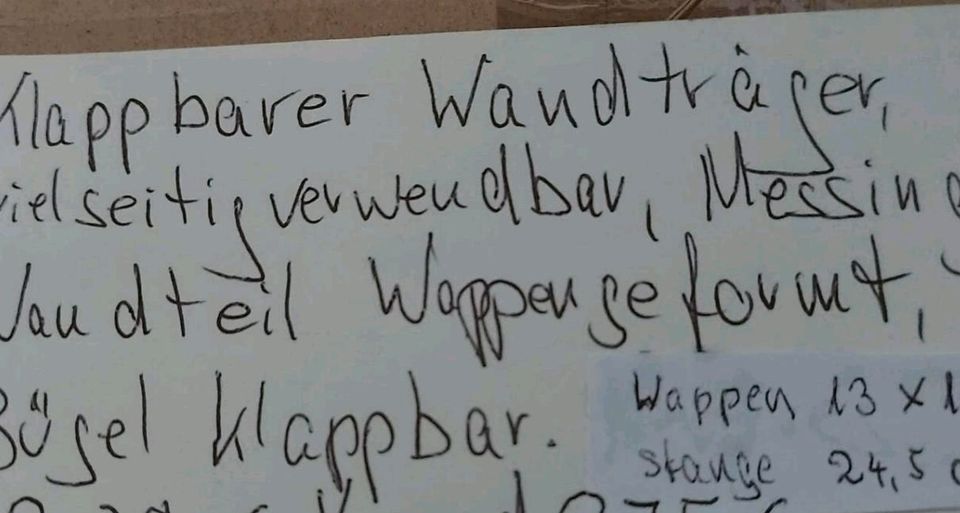 Klappbarer Wandträger,
vielseitig verwendbar, Messing
Wandteil Wappengeformt,
Bügel klappbar.
Wappen 13 x 1
Stange 24,5 c